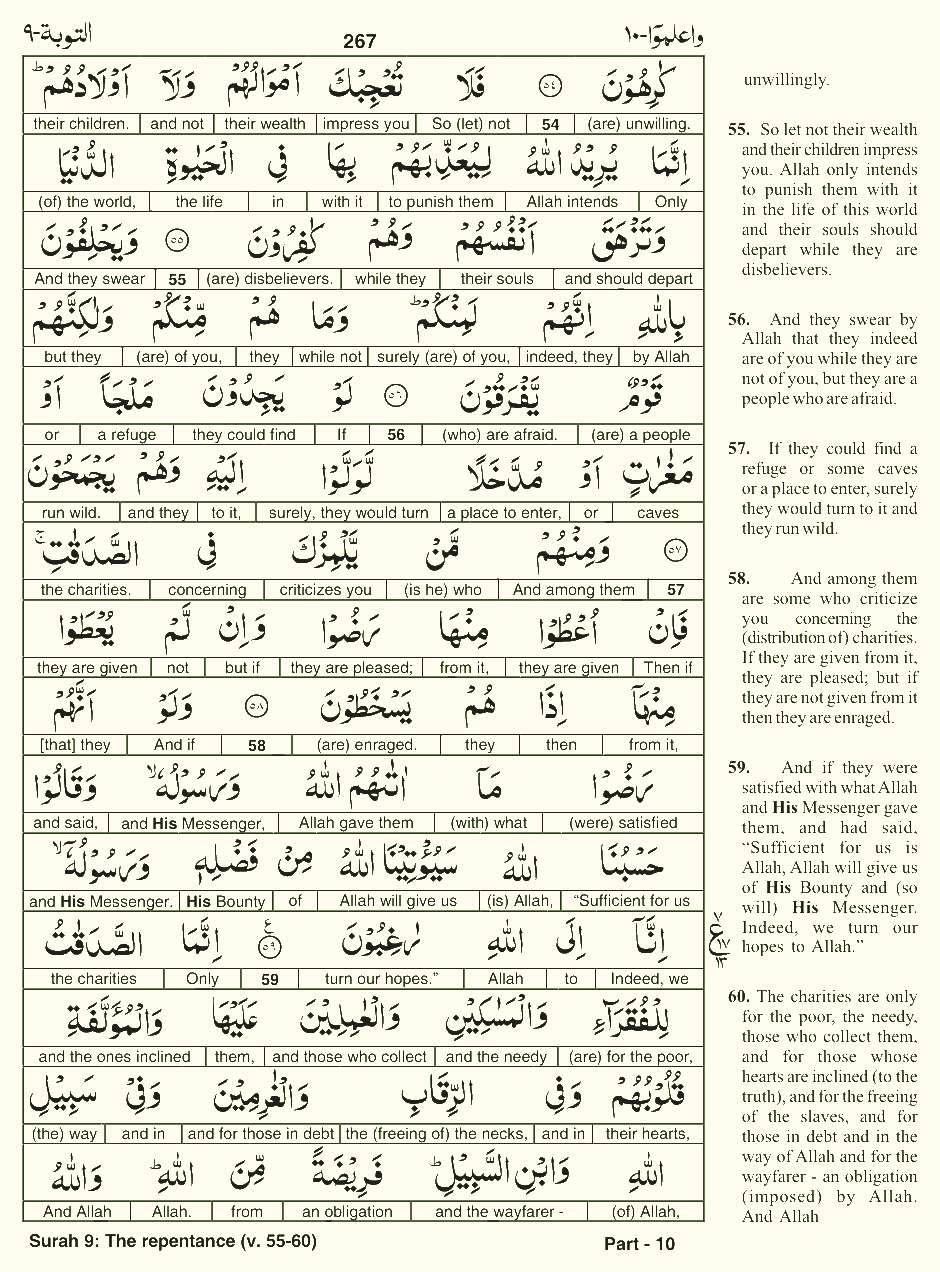 التوبة-٩ 267 واعلموا-١٠
كٰرِهُوْنَ ۝٥٤ فَلَا تُعْجِبْكَ اَمْوَالُهُمْ وَلَآ اَوْلَادُهُمْ ؕ
(are) unwilling. 54 So (let) not impress you their wealth and not their children.
اِنَّمَا يُرِيْدُ اللّٰهُ لِيُعَذِّبَهُمْ بِهَا فِى الْحَيٰوةِ الدُّنْيَا
Only Allah intends to punish them with it in the life (of) the world,
وَتَزْهَقَ اَنْفُسُهُمْ وَهُمْ كٰفِرُوْنَ ۝٥٥ وَيَحْلِفُوْنَ
and should depart their souls while they (are) disbelievers. 55 And they swear
بِاللّٰهِ اِنَّهُمْ لَمِنْكُمْ ؕ وَمَا هُمْ مِّنْكُمْ وَلٰكِنَّهُمْ
by Allah indeed, they surely (are) of you, while not they (are) of you, but they
قَوْمٌ يَّفْرَقُوْنَ ۝٥٦ لَوْ يَجِدُوْنَ مَلْجَاً اَوْ
(are) a people (who) are afraid. 56 If they could find a refuge or
مَغٰرٰتٍ اَوْ مُدَّخَلًا لَّوَلَّوْا اِلَيْهِ وَهُمْ يَجْمَحُوْنَ
caves or a place to enter, surely, they would turn to it, and they run wild.
۝٥٧ وَمِنْهُمْ مَّنْ يَّلْمِزُكَ فِى الصَّدَقٰتِ ۚ
57 And among them (is he) who criticizes you concerning the charities.
فَاِنْ اُعْطُوْا مِنْهَا رَضُوْا وَاِنْ لَّمْ يُعْطَوْا
Then if they are given from it, they are pleased; but if not they are given
مِنْهَآ اِذَا هُمْ يَسْخَطُوْنَ ۝٥٨ وَلَوْ اَنَّهُمْ
from it, then they (are) enraged. 58 And if [that] they
رَضُوْا مَآ اٰتٰىهُمُ اللّٰهُ وَرَسُوْلُهٗ ۙ وَقَالُوْا
(were) satisfied (with) what Allah gave them and His Messenger, and said,
حَسْبُنَا اللّٰهُ سَيُؤْتِيْنَا اللّٰهُ مِنْ فَضْلِهٖ وَرَسُوْلُهٗٓ ۙ
“Sufficient for us (is) Allah, Allah will give us of His Bounty and His Messenger.
اِنَّآ اِلَى اللّٰهِ رٰغِبُوْنَ ۝٥٩ اِنَّمَا الصَّدَقٰتُ
Indeed, we to Allah turn our hopes.” 59 Only the charities
لِلْفُقَرَآءِ وَالْمَسٰكِيْنِ وَالْعٰمِلِيْنَ عَلَيْهَا وَالْمُؤَلَّفَةِ
(are) for the poor, and the needy and those who collect them, and the ones inclined
قُلُوْبُهُمْ وَفِى الرِّقَابِ وَالْغٰرِمِيْنَ وَفِىْ سَبِيْلِ
their hearts, and in the (freeing of) the necks, and for those in debt and in (the) way
اللّٰهِ وَابْنِ السَّبِيْلِ ؕ فَرِيْضَةً مِّنَ اللّٰهِ ؕ وَاللّٰهُ
(of) Allah, and the wayfarer - an obligation from Allah. And Allah
Surah 9: The repentance (v. 55-60) Part - 10
unwillingly.
55. So let not their wealth
and their children impress
you. Allah only intends
to punish them with it
in the life of this world
and their souls should
depart while they are
disbelievers.
56. And they swear by
Allah that they indeed
are of you while they are
not of you, but they are a
people who are afraid.
57. If they could find a
refuge or some caves
or a place to enter, surely
they would turn to it and
they run wild.
58. And among them
are some who criticize
you concerning the
(distribution of) charities.
If they are given from it,
they are pleased; but if
they are not given from it
then they are enraged.
59. And if they were
satisfied with what Allah
and His Messenger gave
them, and had said,
“Sufficient for us is
Allah, Allah will give us
of His Bounty and (so
will) His Messenger.
Indeed, we turn our
hopes to Allah.”
٧
ع ١٧
١٣
60. The charities are only
for the poor, the needy,
those who collect them,
and for those whose
hearts are inclined (to the
truth), and for the freeing
of the slaves, and for
those in debt and in the
way of Allah and for the
wayfarer - an obligation
(imposed) by Allah.
And Allah